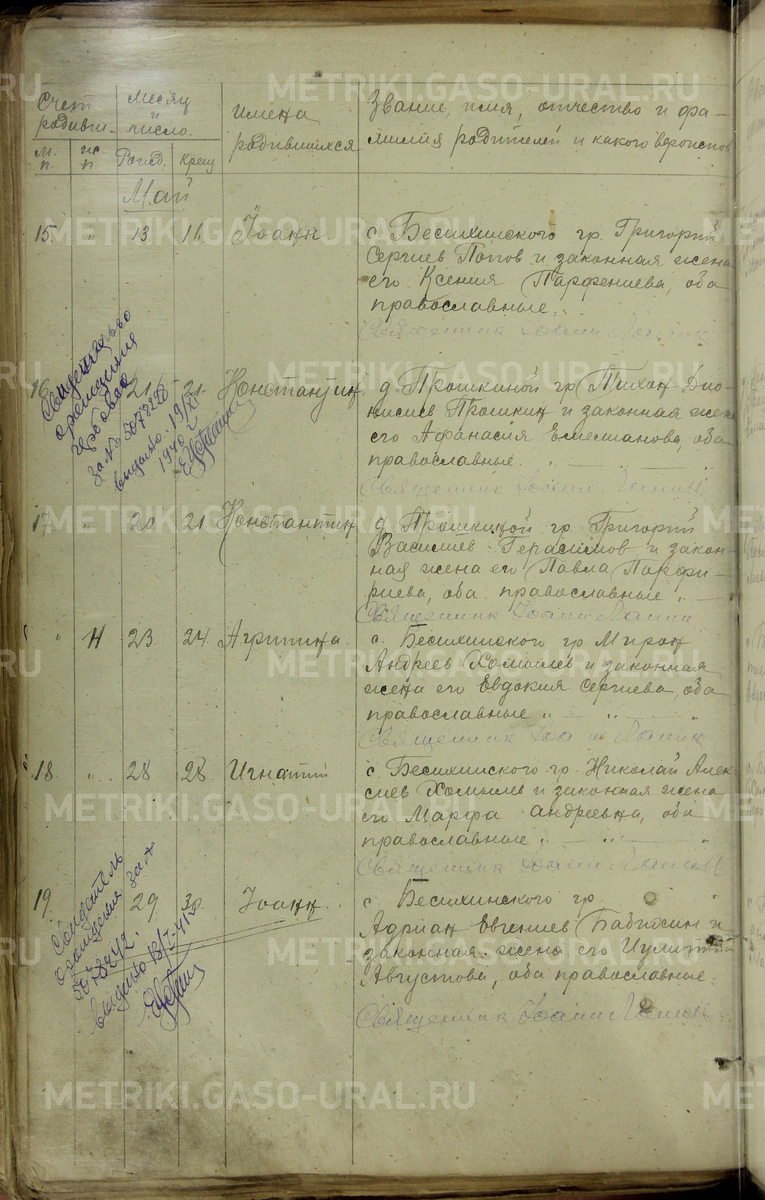 Счет родивши.
Месяц и число.
имена родившихся
Звание, имя, отчество и фа-
милия родителей и какого вероиспов
М. п.
Рожд.
Крещ
Май
15. " 13 16 Іоанн
с. Бесихинского гр. Григорий
Сергиев Попов и законная жена
его Ксения Парфениева, оба
православные.
Священник Іоанн
16 21 21 Константин
д. Прошкиной гр. Тихон Дио-
нисиев Прошкин и законная жен
его Афанасия Емелианова, оба
православные.
Священник Іоанн
Свидетельство
о рождении
за № 5078238
выдано 19
1940
17 " 20 21 Константин
д. Прошкиной гр. Григорий
Василиев Герасимов и закон-
ная жена его Павла Порфи-
риева, оба православные
Священник Іоанн
" 4 23 24 Агрипина
с. Бесихинского гр. Мирон
Андреев Хомылев и законная
жена его Евдокия Сергиева, оба
православные
Священник Іоанн
18 " 28 28 Игнатий
с. Бесихинского гр. Николай Алек-
сиев Хомылев и законная жена
его Марфа Андреевна, оба
православные
Священник Іоанн
19 29 30 Іоанн
с. Бесихинского гр.
Адриан Евгениев Бабкосин и
законная жена его Иулитта
Августова, оба православные.
Священник Іоанн
Свидетель
о рождении за №
5078242.
выдано 18/I-41
METRIKI.GASO-URAL.RU